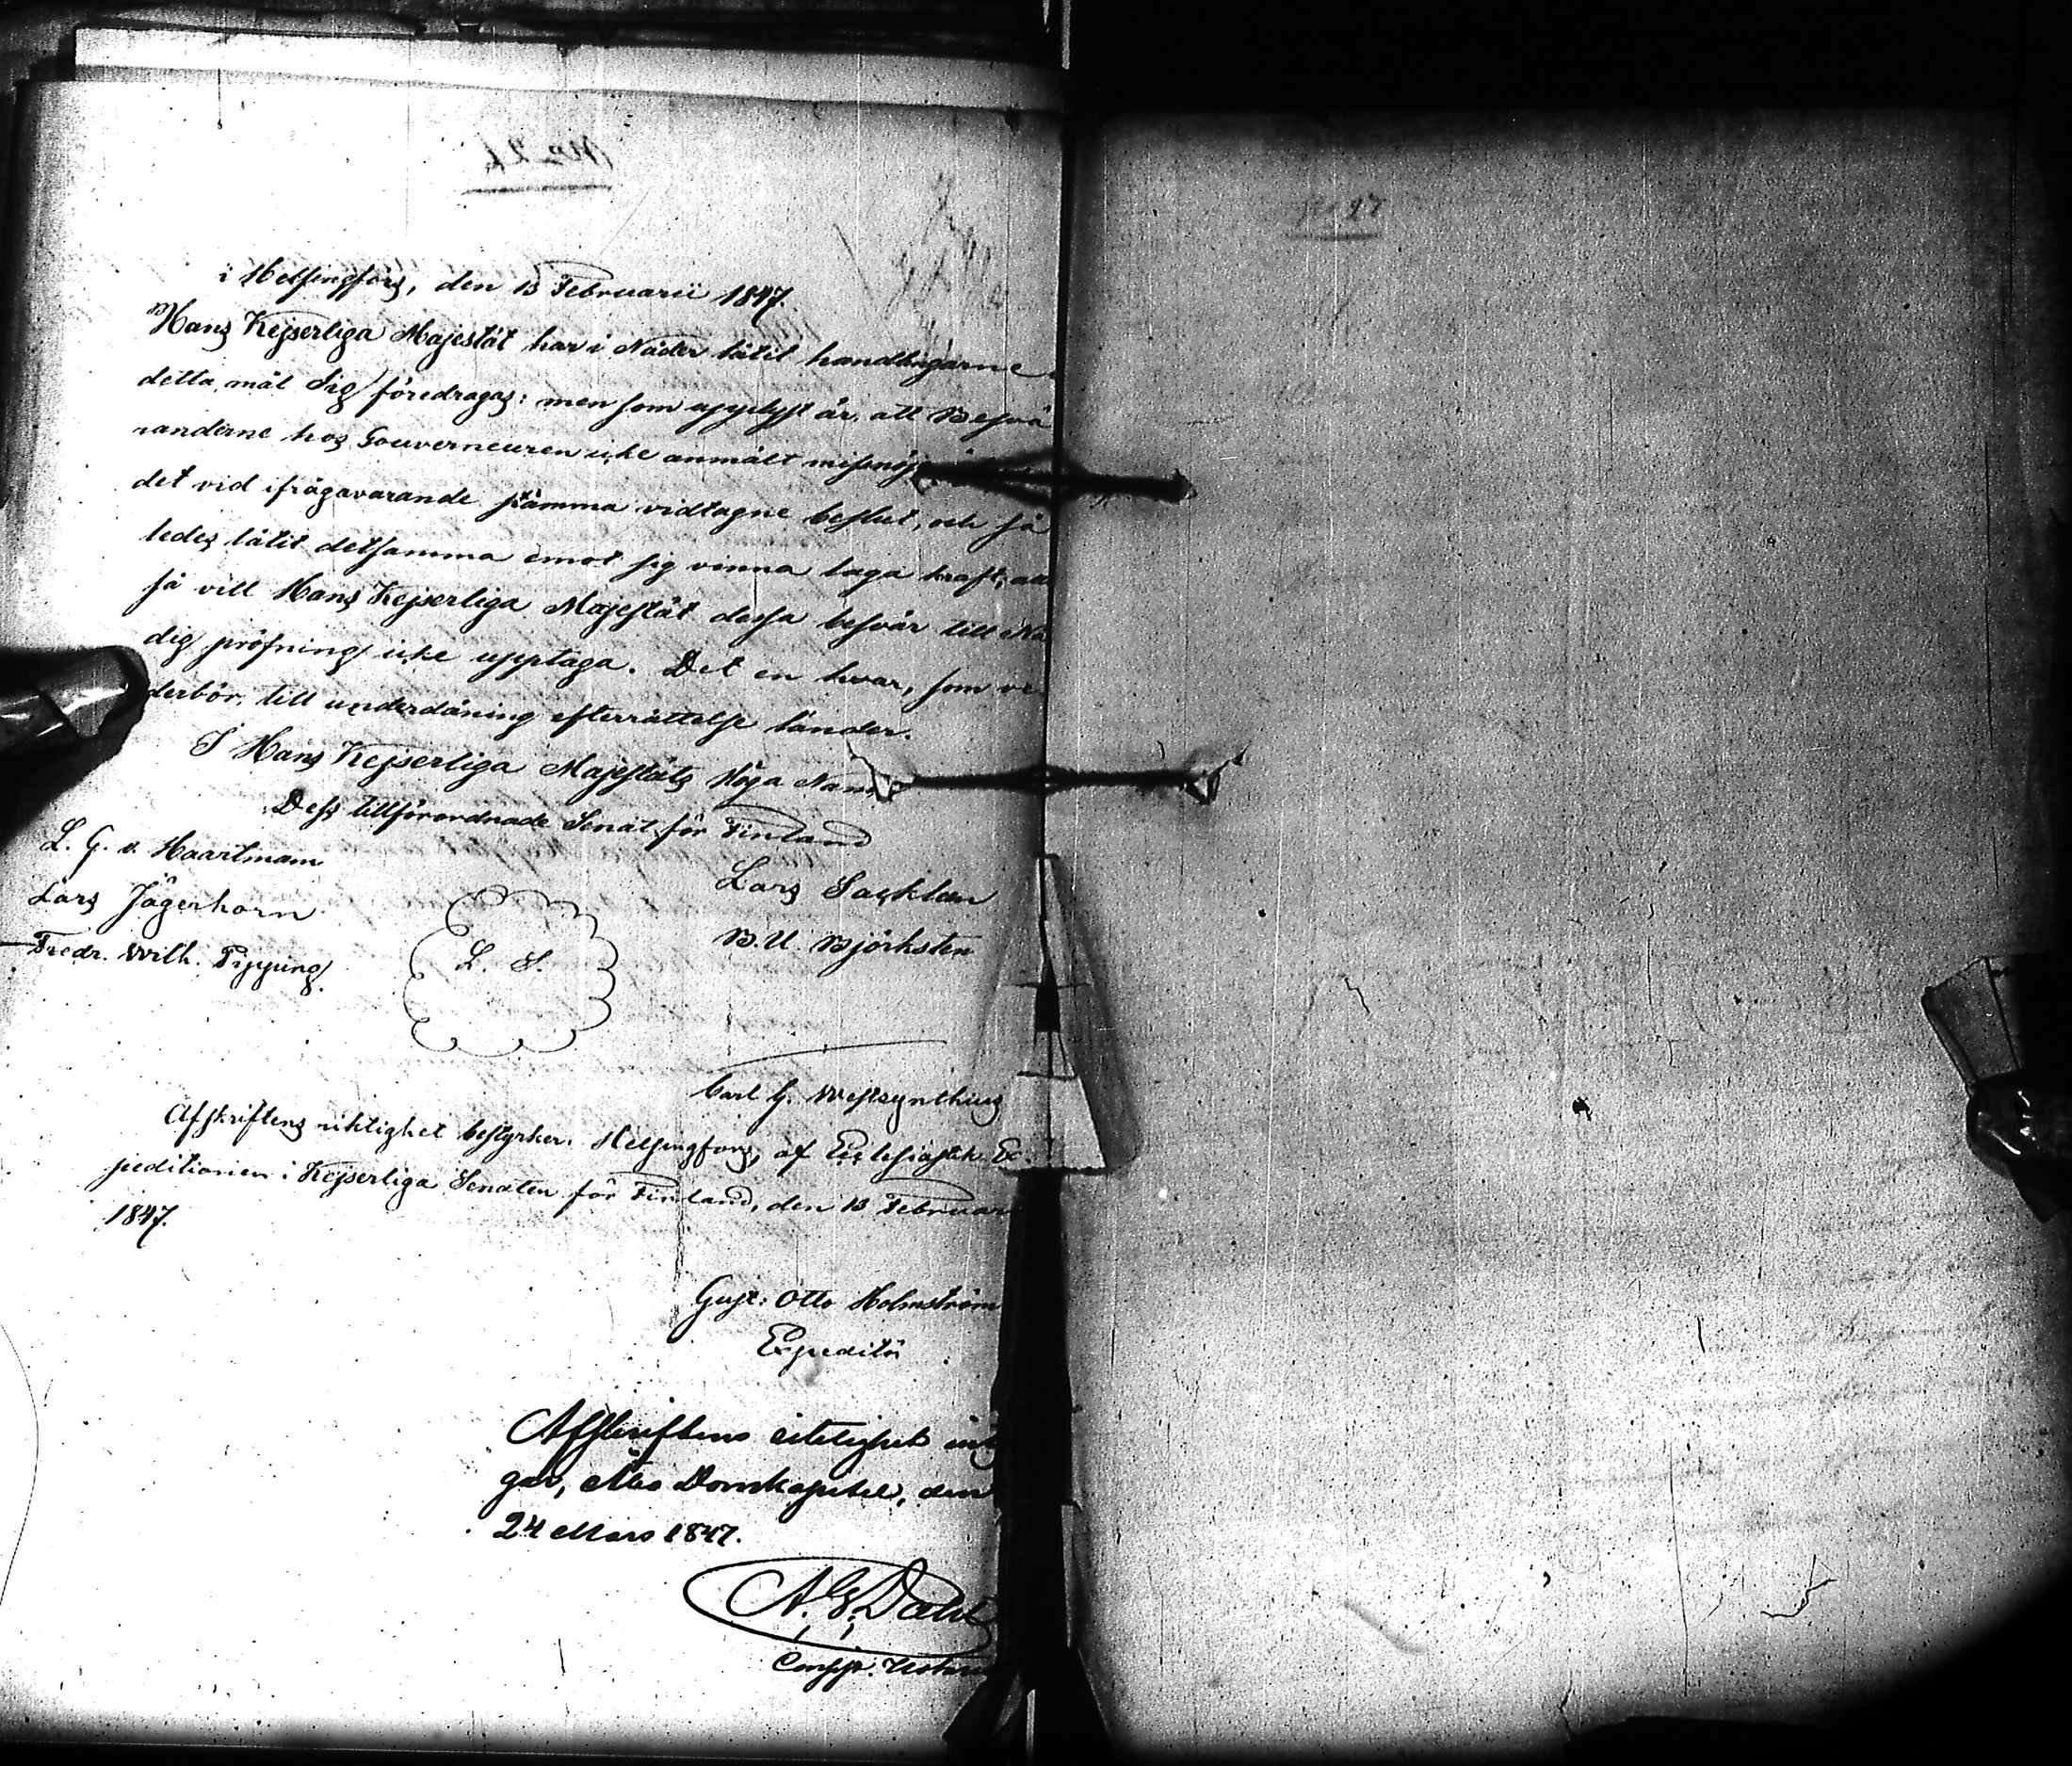 i Helsingfors, den 13 Februarii 1847.
Hans Kejserliga Majestät har i Nåder låtit handlingarne i
detta mål Sig föredragas: men som upplyst är, att Besvä
randerne hos Gouverneuren icke anmält missnöje
det vid ifrågavarande stämma vidtagne beslut, och så
ledes låtit detsamma emot sig vinna laga kraft; alt
så vill Hans Kejserliga Majestät dessa besvär till Nå
dig pröfning icke upptaga. Det en hvar, som ve
derbör, till underdåning efterrättelse länder.
I Hans Kejserliga Majestäts Höga Namn
Dess tillförordnade Senat för Finland
L. G. v. Haartmann
Lars Sacklen
Lars Jägerhorn
B. U. Björksten
Fredr. Wilh. Pipping
L. S.
Carl G. Westzynthius
Afskriftens riktighet bestyrker. Helsingfors, af Ecclesiastik Ex
peditionen i Kejserliga Senaten för Finland, den 13 Februari
1847.
Gust: Otto Holmström
Expeditör
Afskriftens riktighet inty
gar, Åbo Domkapitel, den
24 Mars 1847.
A. G. Dahl
Consist. Notari
No 27